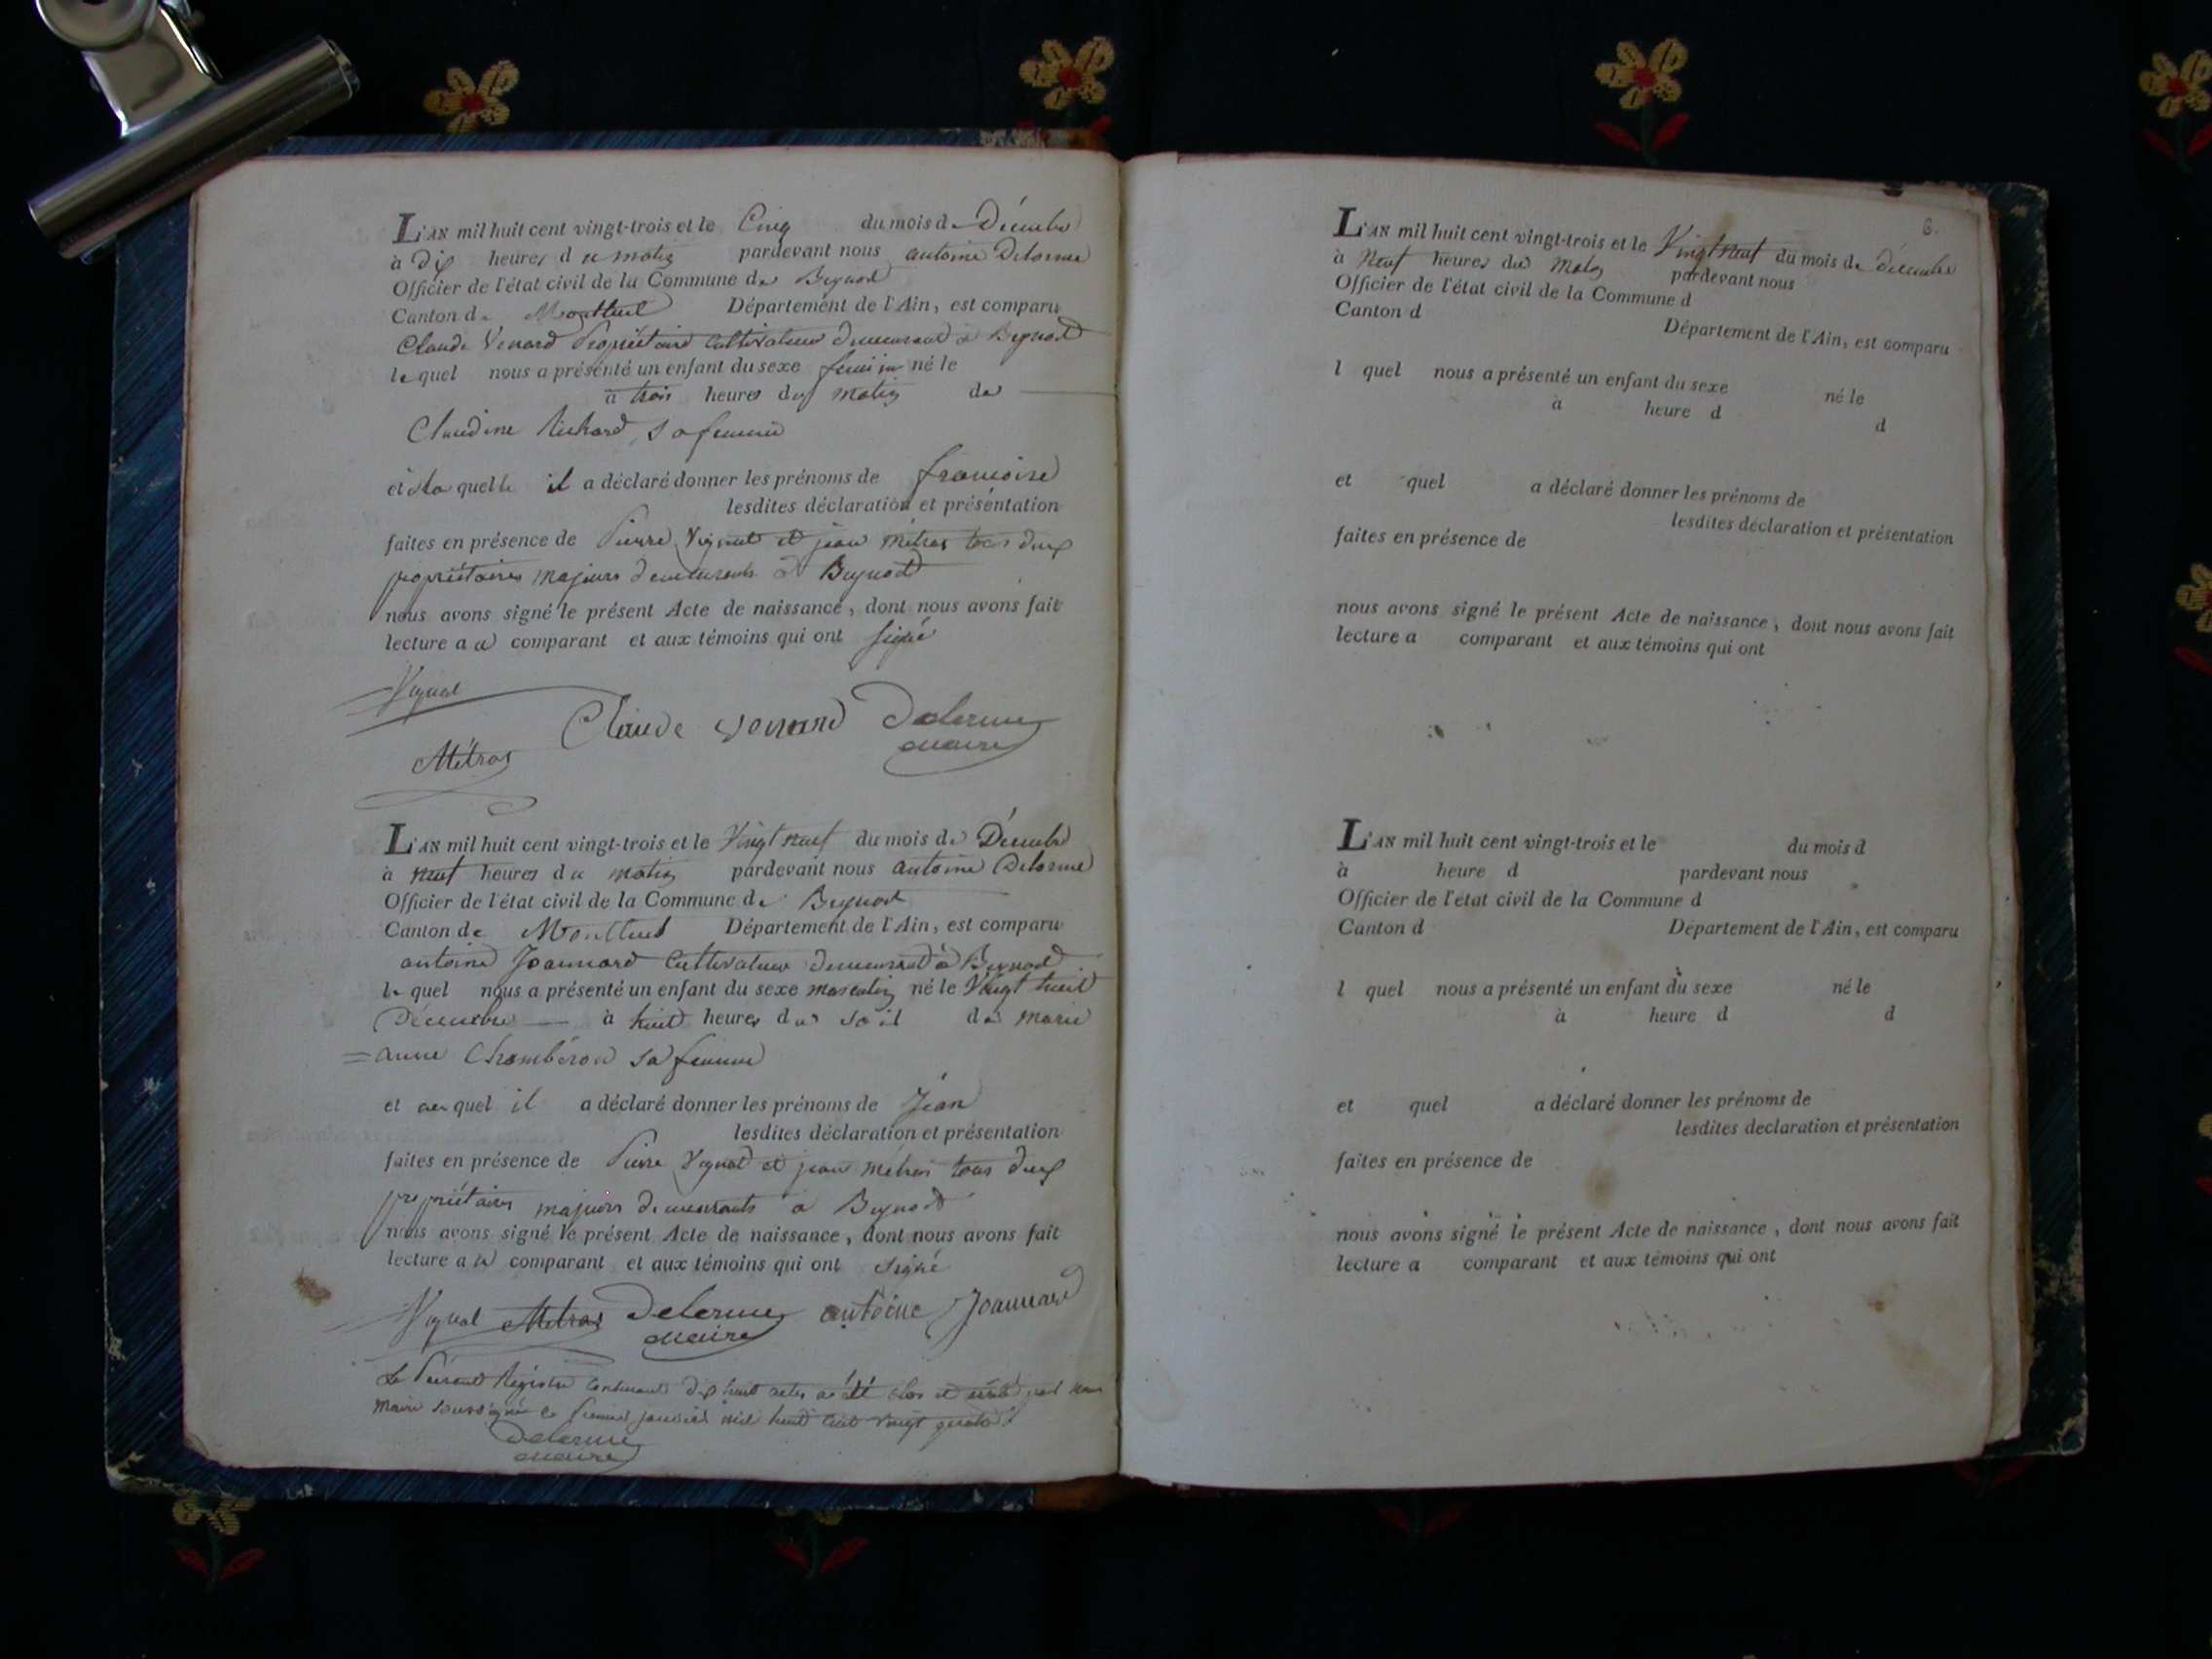 L'AN mil huit cent vingt-trois et le Cinq du mois de Décembre
à Dix heures du matin pardevant nous antoine Delorme
Officier de l'état civil de la Commune de Beynost
Canton de Montluel Département de l'Ain, est comparu
Claude Venard Propriétaire Cultivateur demeurant à Beynost
lequel nous a présenté un enfant du sexe feminin né le
à trois heures du matin de
Claudine Richard sa femme
et à laquelle il a déclaré donner les prénoms de francoise
lesdites déclaration et présentation
faites en présence de Pierre Vignat et jean métras tous deux
propriétaires majeurs demeurants à Beynost
nous avons signé le présent Acte de naissance, dont nous avons fait
lecture au comparant et aux témoins qui ont signé
Vignat
Claude venard Delorme
maire
Métras
L'AN mil huit cent vingt-trois et le Vingt neuf du mois de Décembre
à neuf heures du matin pardevant nous antoine Delorme
Officier de l'état civil de la Commune de Beynost
Canton de Montluel Département de l'Ain, est comparu
antoine Joannard Cultivateur demeurant à Beynost
lequel nous a présenté un enfant du sexe masculin né le Vingt huit
Décembre à huit heures du soir de marie
= anne Chambéron sa femme
et auquel il a déclaré donner les prénoms de Jean
lesdites déclaration et présentation
faites en présence de Pierre Vignat et jean métras tous deux
propriétaires majeurs demeurants à Beynost
nous avons signé le présent Acte de naissance, dont nous avons fait
lecture au comparant et aux témoins qui ont signé
Vignat Métras Delorme antoine Joannard
maire
Le Présent Régistre contenant dix huit actes a été clos et arrêté par nous
maire soussigné le premier janvier mil huit cent vingt quatre
Delorme
maire
6.
L'AN mil huit cent vingt-trois et le Vingt neuf du mois de décembre
à neuf heures du matin pardevant nous
Officier de l'état civil de la Commune d
Canton d Département de l'Ain, est comparu
l quel nous a présenté un enfant du sexe né le
à heure d d
et quel a déclaré donner les prénoms de
lesdites déclaration et présentation
faites en présence de
nous avons signé le présent Acte de naissance, dont nous avons fait
lecture a comparant et aux témoins qui ont
L'AN mil huit cent vingt-trois et le du mois d
à heure d pardevant nous
Officier de l'état civil de la Commune d
Canton d Département de l'Ain, est comparu
l quel nous a présenté un enfant du sexe né le
à heure d d
et quel a déclaré donner les prénoms de
lesdites declaration et présentation
faites en présence de
nous avons signé le présent Acte de naissance, dont nous avons fait
lecture a comparant et aux témoins qui ont